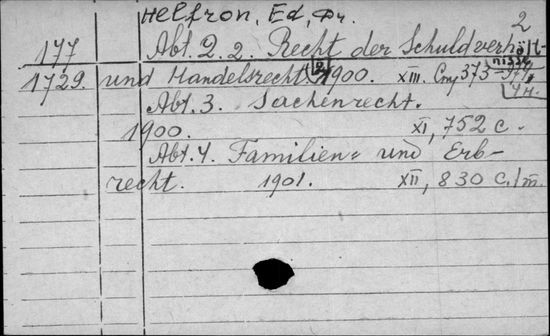 Helfron, Ed, Dr.
2
177 Abt. 2. 2. Recht der Schuldverhält-
1729. und Handelsrecht 2 1900. XIII. Стр 373-
Abt. 3. Sachenrecht.
1900. XI, 752 с.
Abt. 4. Familien= und Erb-
recht. 1901. XII, 830 с. 1 т.